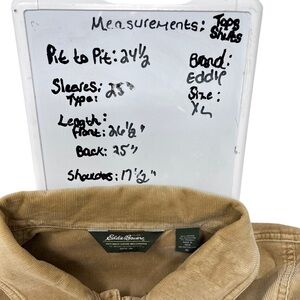 Measurements: Tops
Shirts
Pit to Pit: 24 1/2
Brand:
Eddie
Sleeves: 25"
Type:
Size:
XL
Length:
Front: 26 1/2"
Back: 25"
Shoulders: 17 1/2"
Eddie Bauer